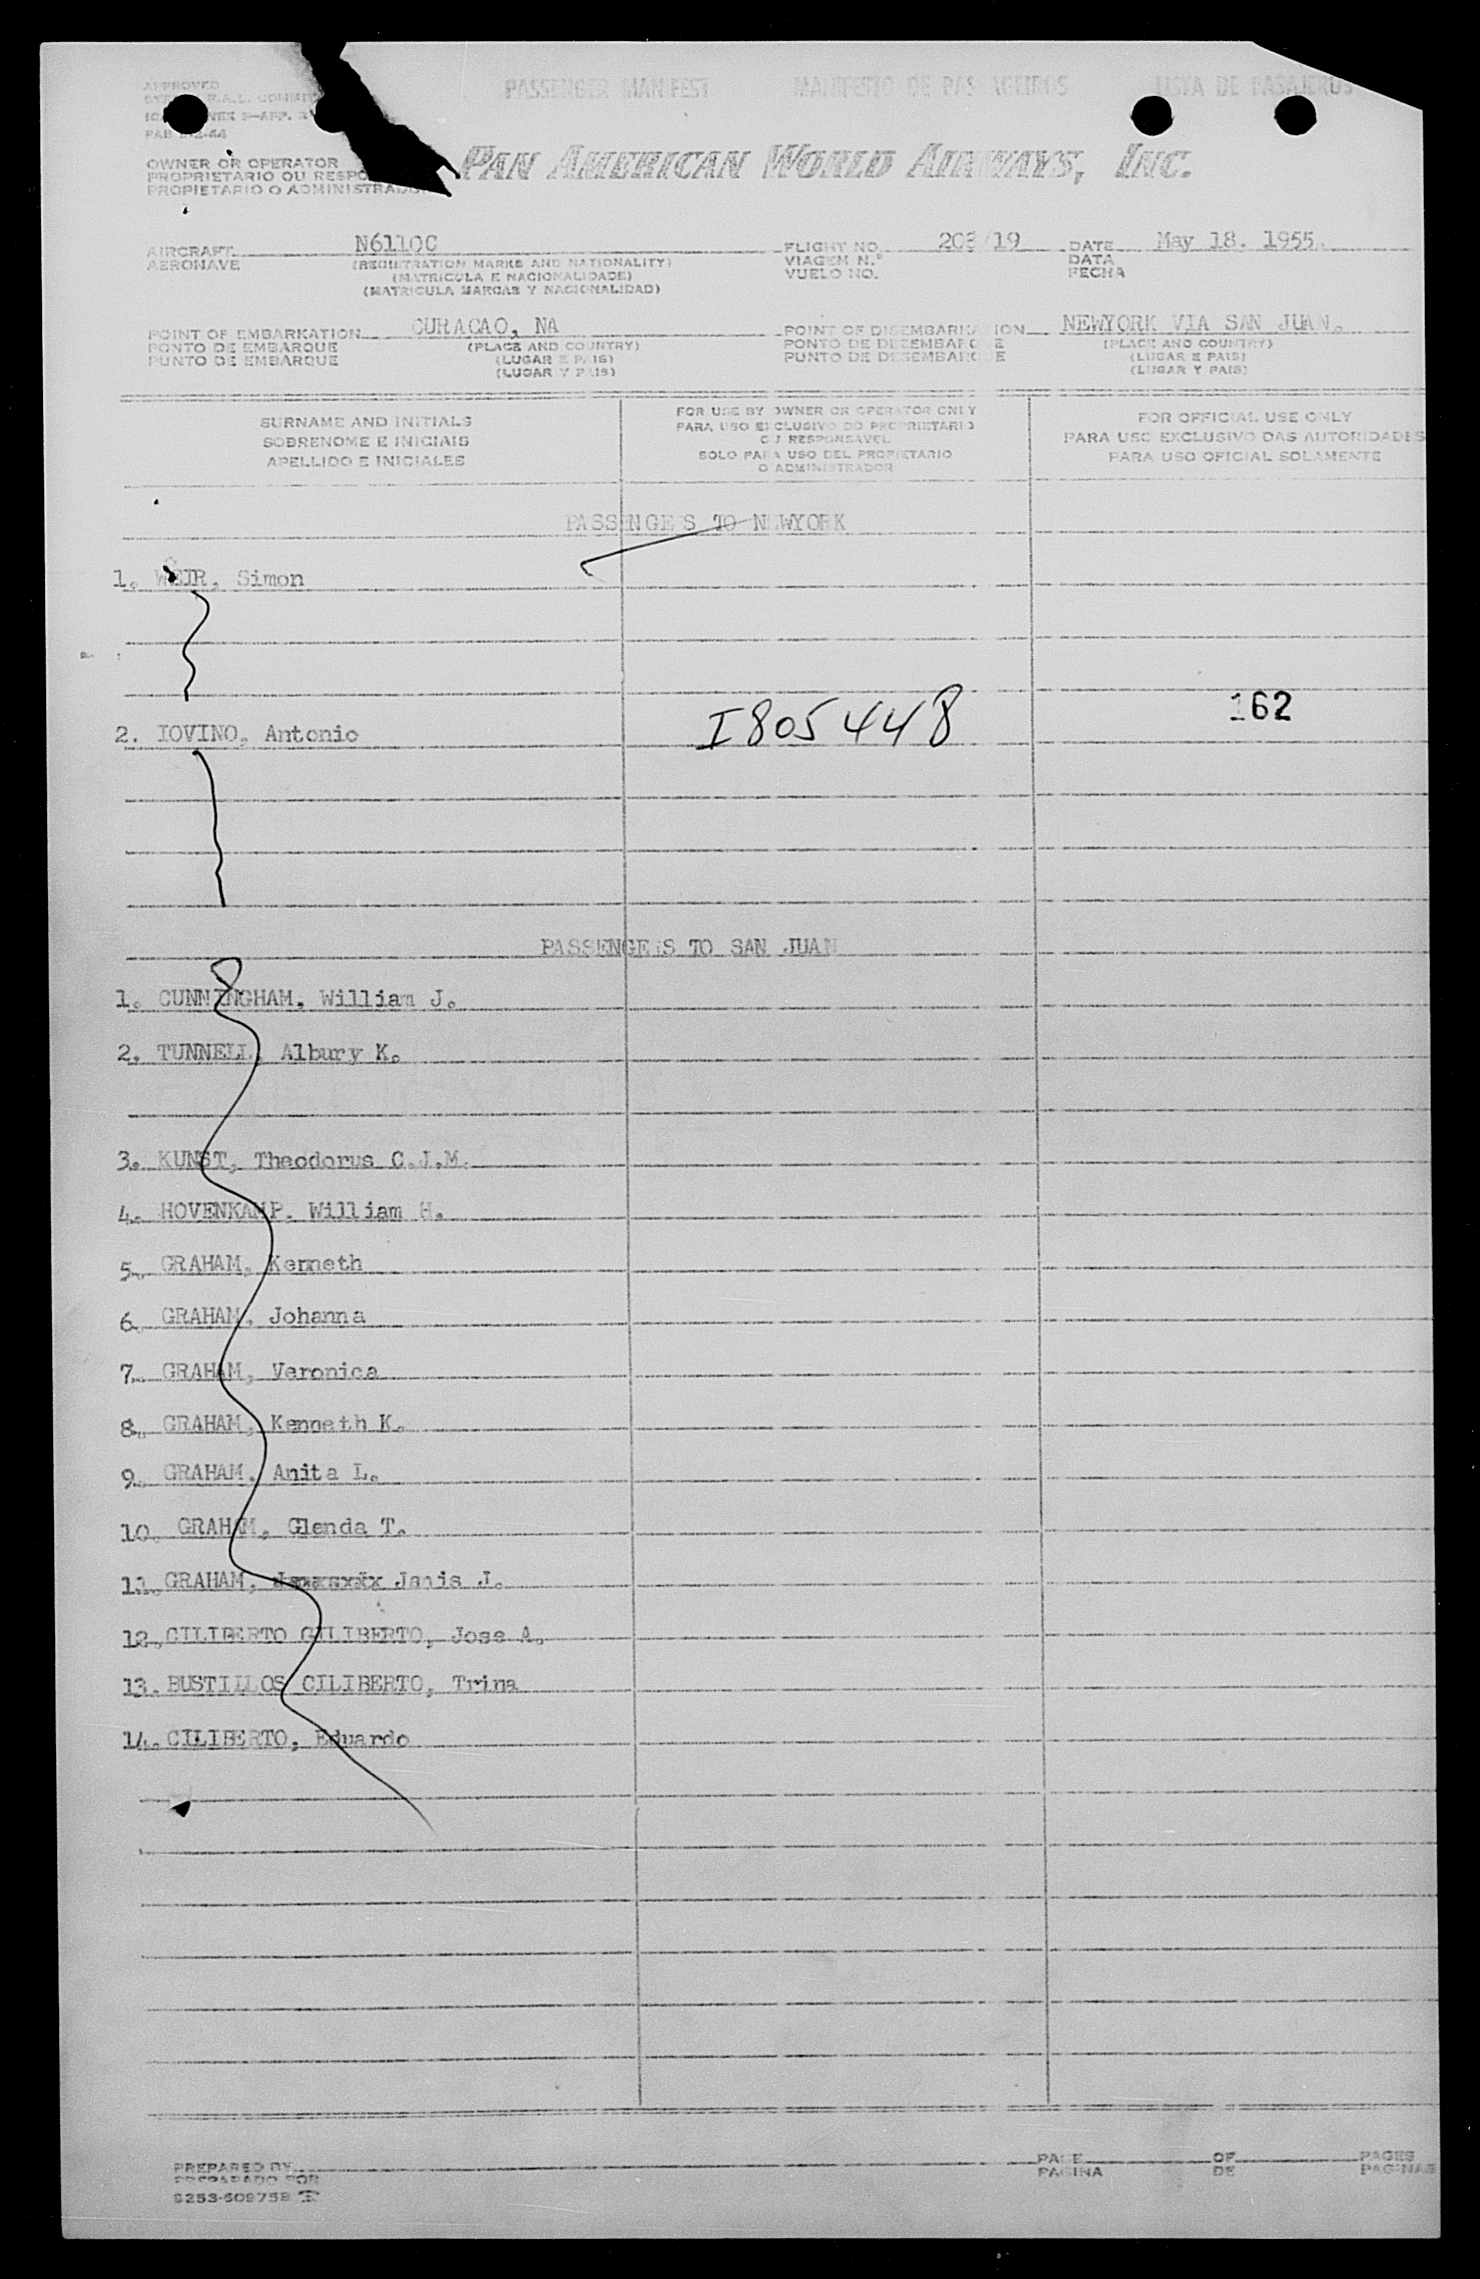 APPROVED
PASSENGER MANIFEST MANIFESTO DE PASSAGEIROS LISTA DE PASAJEROS
OWNER OR OPERATOR
PROPRIETARIO OU RESPO
PROPIETARIO O ADMINISTRADOR
PAN AMERICAN WORLD AIRWAYS, INC.
AIRCRAFT N6110C FLIGHT NO. 203/19 DATE May 18. 1955.
AERONAVE (REGISTRATION MARKS AND NATIONALITY) VIAGEM N.º DATA
(MATRICULA E NACIONALIDADE) VUELO NO. FECHA
(MATRICULA MARCAS Y NACIONALIDAD)
POINT OF EMBARKATION CURACAO, NA POINT OF DISEMBARKATION NEWYORK VIA SAN JUAN.
PONTO DE EMBARQUE (PLACE AND COUNTRY) PONTO DE DEZEMBARQUE (PLACE AND COUNTRY)
PUNTO DE EMBARQUE (LUGAR E PAIS) PUNTO DE DESEMBARQUE (LUGAR E PAIS)
(LUGAR Y PAIS) (LUGAR Y PAIS)
SURNAME AND INITIALS FOR USE BY OWNER OR OPERATOR ONLY FOR OFFICIAL USE ONLY
SOBRENOME E INICIAIS PARA USO EXCLUSIVO DO PROPRIETARIO PARA USO EXCLUSIVO DAS AUTORIDADES
OU RESPONSAVEL
APELLIDO E INICIALES SOLO PARA USO DEL PROPIETARIO PARA USO OFICIAL SOLAMENTE
O ADMINISTRADOR
PASSENGERS TO NEWYORK
1. WEIR, Simon
2. IOVINO, Antonio I805448 162
PASSENGERS TO SAN JUAN
1. CUNNINGHAM, William J.
2. TUNNELL, Albury K.
3. KUNST, Theodorus C.J.M.
4. HOVENKAMP. William H.
5. GRAHAM, Kenneth
6. GRAHAM, Johanna
7. GRAHAM, Veronica
8. GRAHAM, Kenneth K.
9. GRAHAM, Anita L.
10. GRAHAM, Glenda T.
11. GRAHAM, Janis J.
12. CILIBERTO CILIBERTO, Jose A.
13. BUSTILLOS CILIBERTO, Trina
14. CILIBERTO, Eduardo
PREPARED BY PAGE OF PAGES
PREPARADO POR PAGINA DE PAGINAS
9253-609758